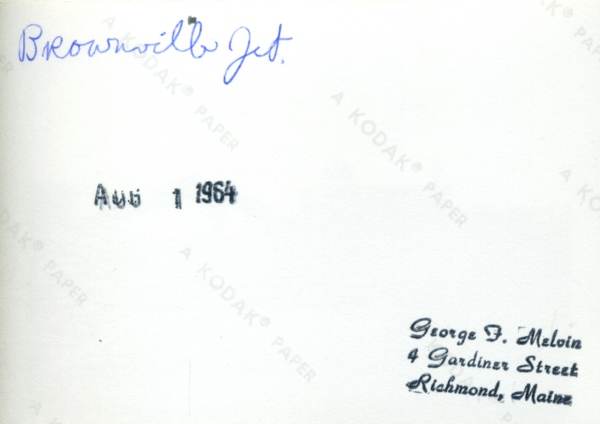 Brownville Jct.
AUG 1 1964
George F. Melvin
4 Gardiner Street
Richmond, Maine
A KODAK® PAPER
A KODAK® PAPER
A KODAK® PAPER
A KODAK® PAPER